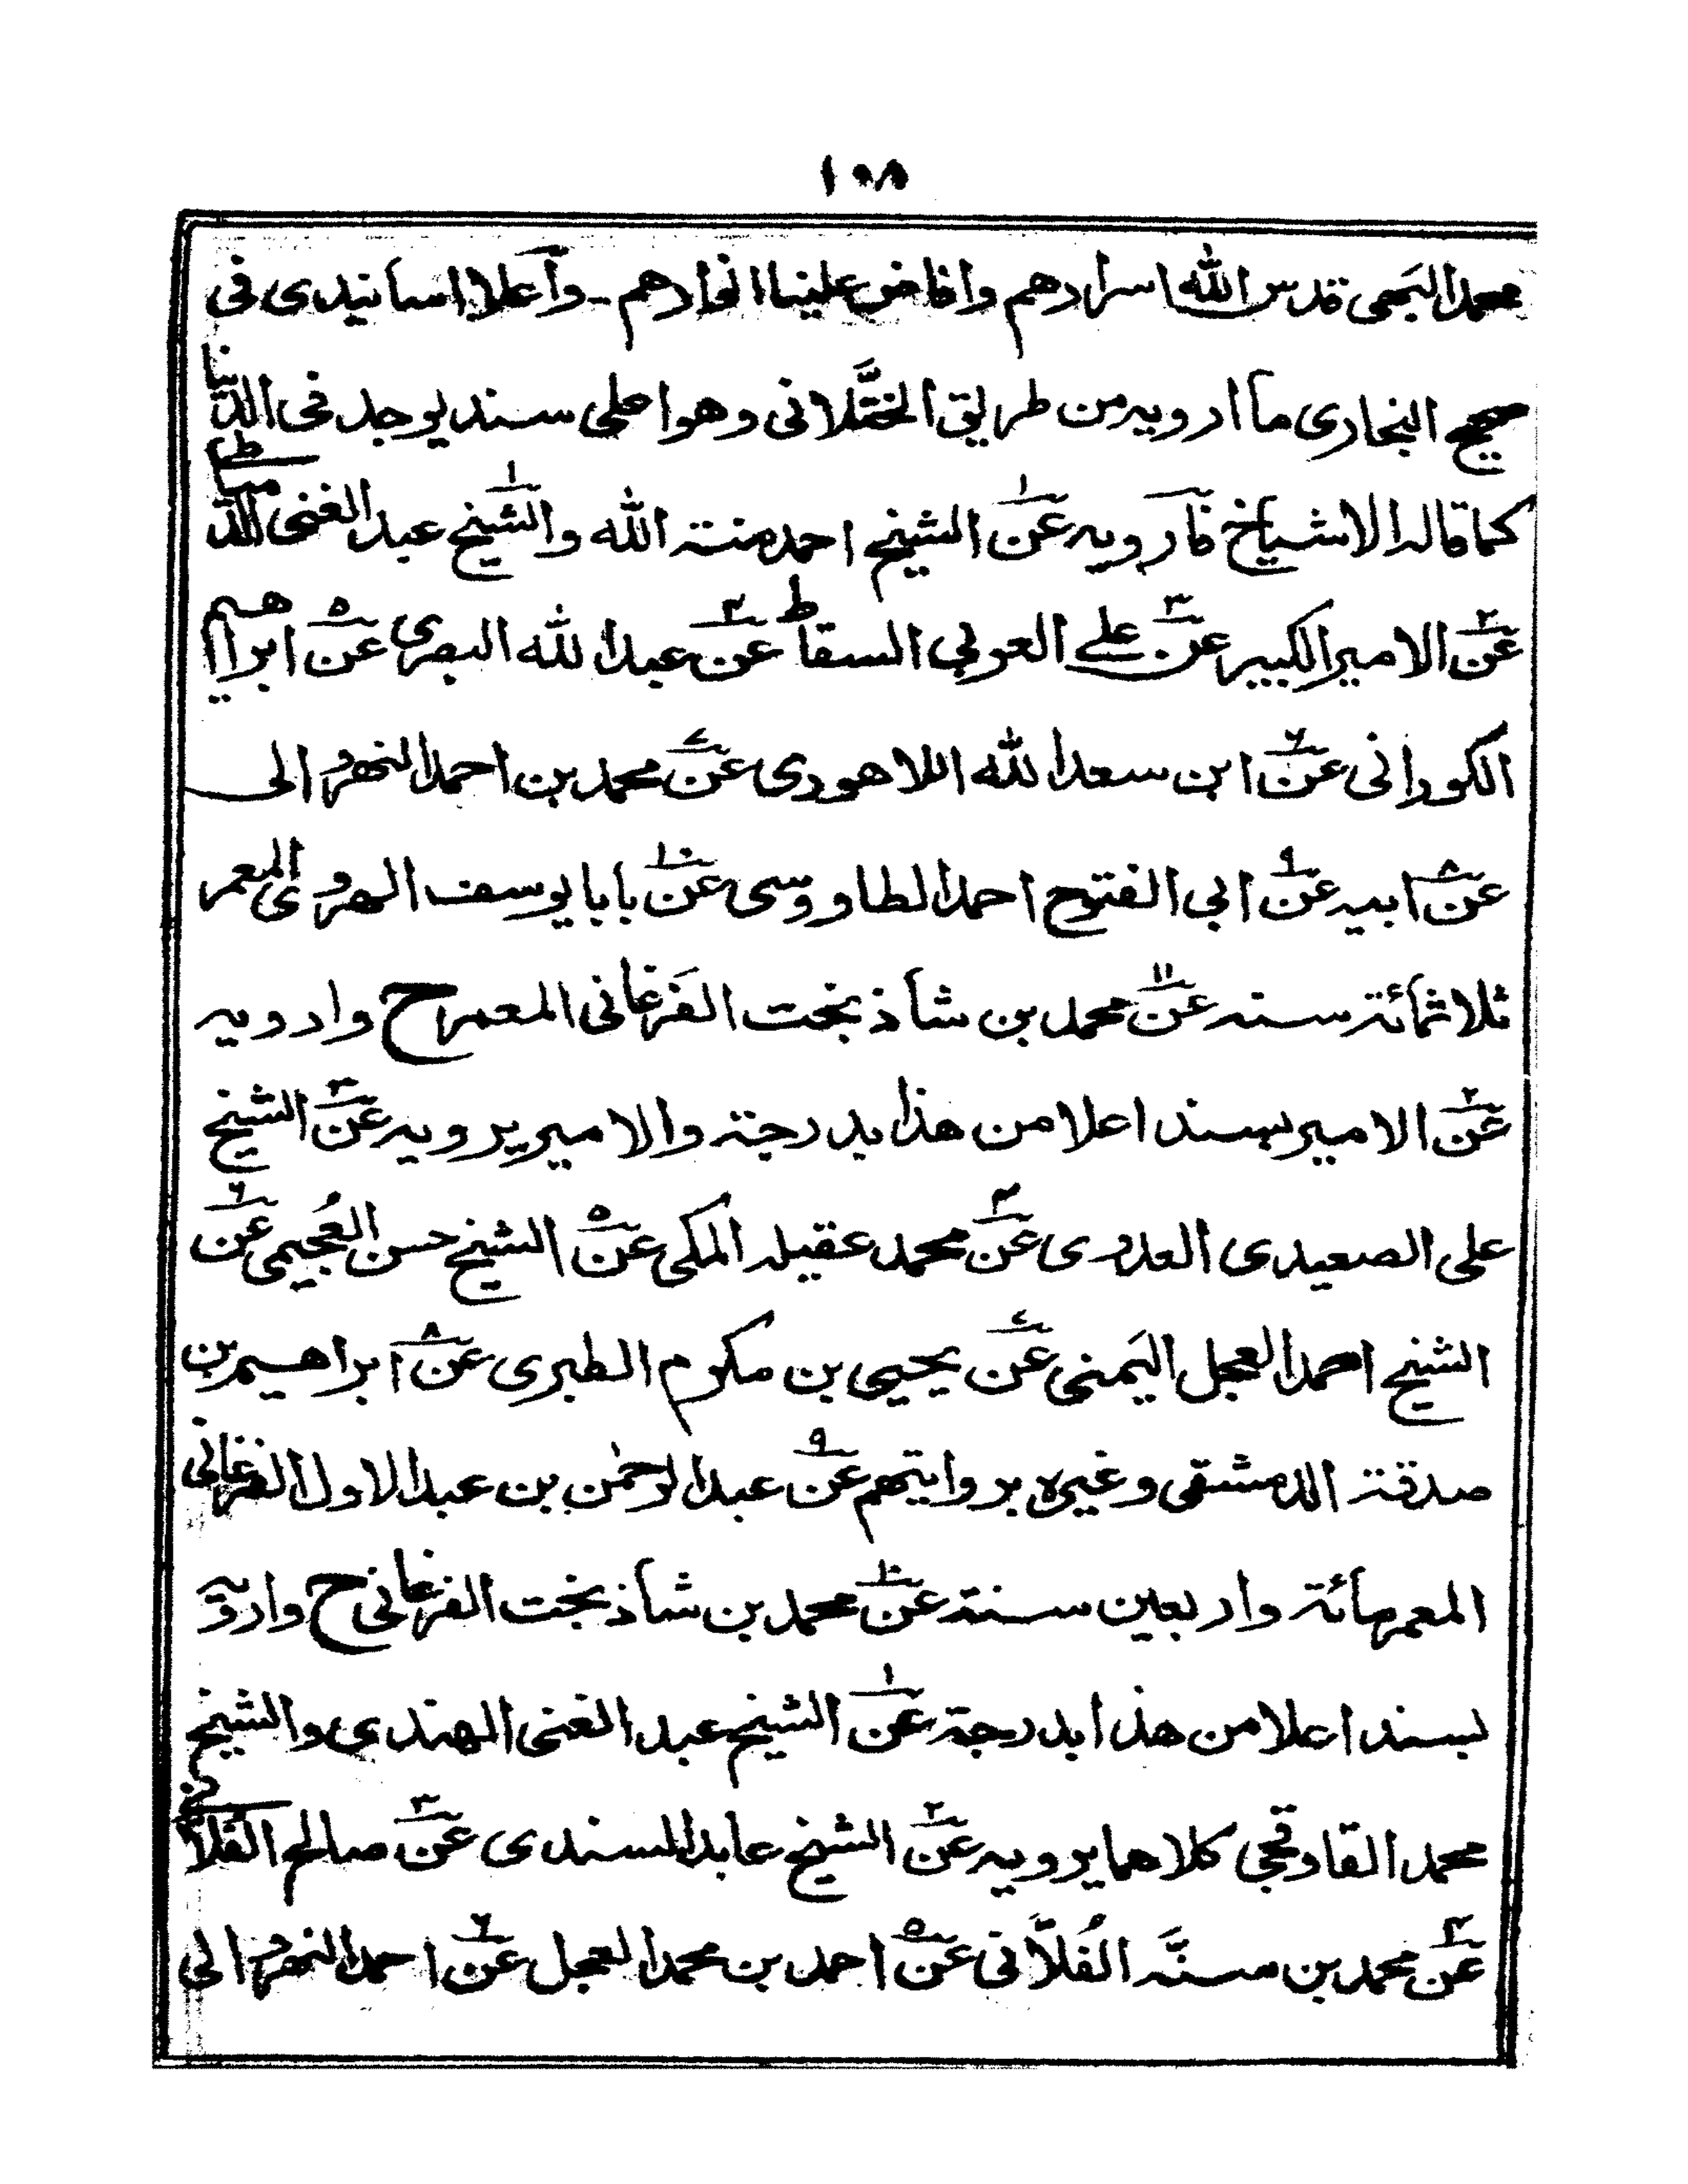 ١٥٨
محمد البَهى قدس الله اسرارهم وافاض علينا انوارهم - وأعلا اسانيدى فى
صحيح البخارى ما ارويه من طريق الختَّلانى وهو اعلى سند يوجد فى الدنيا
كما قاله الاشياخ فارويه عن١ الشيخ احمد منة الله والشيخ١ عبد الغنى الدمياطى
عن٢ الامير الكبير عن٣ على العربى السقاط عن٤ عبد الله البصرى عن٥ ابراهيم
الكورانى عن٦ ابن سعد الله اللاهورى عن٧ محمد بن احمد النهروالى
عن٨ ابيه عن٩ ابى الفتوح احمد الطاووسى عن١٠ بابا يوسف الهروى المعمر
ثلاثمائة سنه عن١١ محمد بن شاذ بخت الفَرغانى المعمر ح وارويه
عن٢ الامير بسند اعلا من هذا بدرجة والامير يرويه عن٣ الشيخ
على الصعيدى العدوى عن٤ محمد عقيله المكى عن٥ الشيخ حسن العُجيمى عن٦
الشيخ احمد العجل اليَمنى عن٧ يحيى بن مكرم الطبرى عن٨ ابراهيم بن
صدقة الدمشقى وغيره بروايتهم عن٩ عبد الرحمٰن بن عبد الاول الفرغانى
المعمر مائة واربعين سنة عن١٠ محمد بن شاذ بخت الفرغانى ح وارويه
بسند اعلا من هذا بدرجة عن١ الشيخ عبد الغنى الهندى والشيخ
محمد القاوقجى كلاهما يرويه عن٢ الشيخ عابد السندى عن٣ صالح الفُلانى
عن٤ محمد بن سنَّه الفُلاَّنى عن٥ احمد بن محمد العجل عن٦ احمد النهروالى